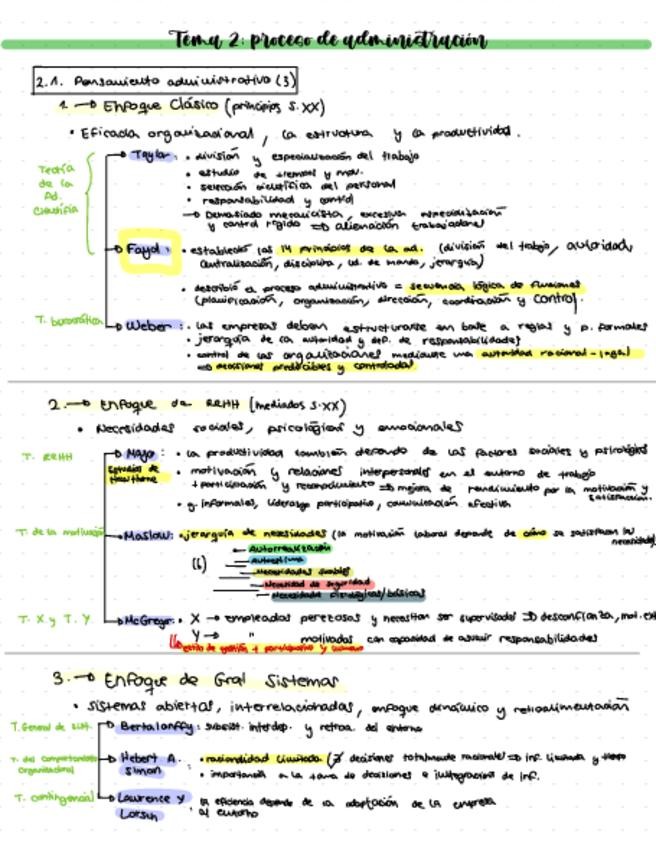 Tema 2: proceso de administración
2.1. Pensamiento administrativo (3)
1. → Enfoque Clásico (principios s.XX)
• Eficacia organizacional, la estructura y la productividad.
Teoría de la Ad. Científica
→ Taylor: • división y especialización del trabajo
• estudio de tiempos y mov.
• selección científica del personal
• responsabilidad y control
→ Demasiado mecanicista, excesiva especialización
y control rígido ⇒ alienación trabajadores
→ Fayol: • estableció las 14 principios de la ad. (división del trabajo, autoridad,
centralización, disciplina, ud. de mando, jerarquía)
• describió el proceso administrativo = secuencia lógica de funciones
(planificación, organización, dirección, coordinación y control.
T. burocrática → Weber: • las empresas deben estructurarse en base a reglas y p. formales
• jerarquía de la autoridad y def. de responsabilidades
• control de las organizaciones mediante una autoridad racional-legal
⇒ decisiones predecibles y controladas
2. → Enfoque de RRHH (mediados s.XX)
• Necesidades sociales, psicológicas y emocionales
T. RRHH → Mayo: • la productividad también depende de los factores sociales y psicológicos
Estudios de Hawthorne • motivación y relaciones interpersonales en el entorno de trabajo
+ participación y reconocimiento ⇒ mejora de rendimiento por la motivación y satisfacción.
• g. informales, liderazgo participativo, comunicación efectiva
T. de la motivación → Maslow: • jerarquía de necesidades (la motivación laboral depende de cómo se satisfacen las necesidades)
Autorrealización
Autoestima
Necesidades sociales
Necesidad de seguridad
Necesidades fisiológicas/básicas
T. X y T. Y → McGregor: • X → empleados perezosos y necesitan ser supervisados ⇒ desconfianza, mot. ext
Y → " motivados con capacidad de asumir responsabilidades
estilo de gestión + participativo y humano
3. → Enfoque de Gral Sistemas
• sistemas abiertas, interrelacionadas, enfoque dinámico y retroalimentación
T. General de sist. → Bertalanffy: subsist. interdep. y retroa. del entorno
T. del comportamiento organizacional → Hebert A. Simon: • racionalidad limitada (∄ decisiones totalmente racionales ⇒ inf. limitada y tiempo
• importancia a la toma de decisiones e integración de inf.
T. contingencial → Lawrence y Lorsch: la eficiencia depende de la adaptación de la empresa
al entorno